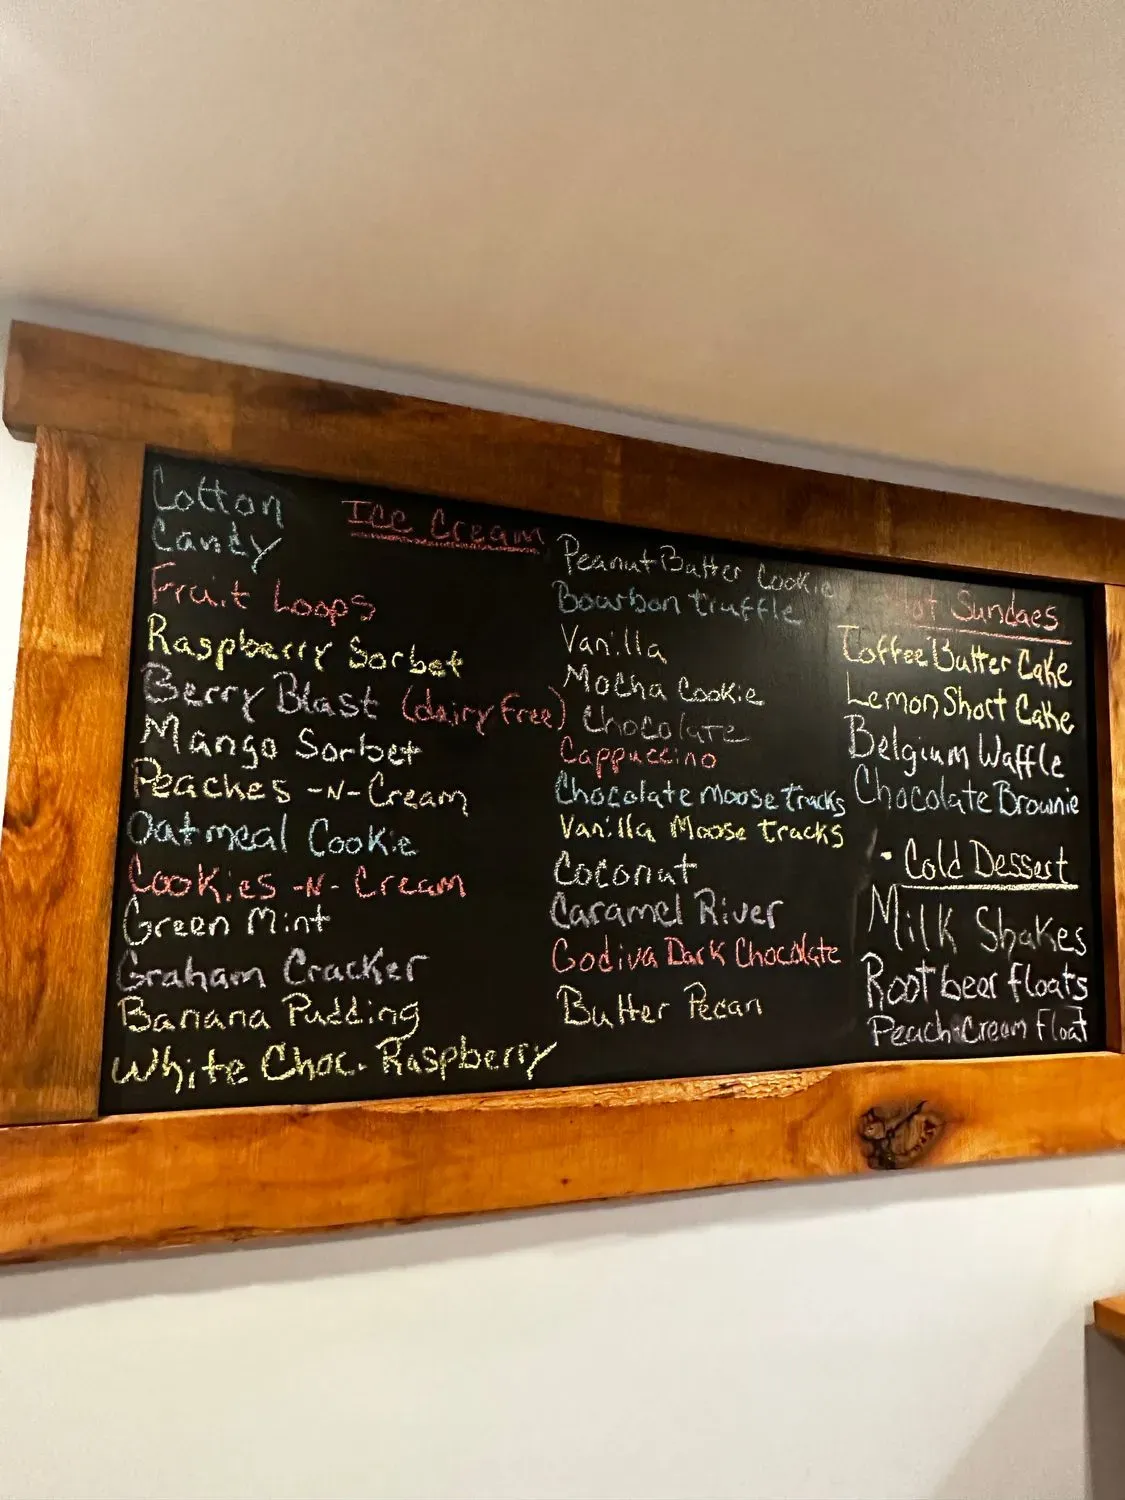 Ice Cream
Cotton
Candy
Fruit Loops
Raspberry Sorbet
Berry Blast (dairy free)
Mango Sorbet
Peaches -N- Cream
Oatmeal Cookie
Cookies -N- Cream
Green Mint
Graham Cracker
Banana Pudding
White Choc. Raspberry
Peanut Butter Cookie
Bourbon truffle
Vanilla
Mocha Cookie
Chocolate
Cappuccino
Chocolate Moose tracks
Vanilla Moose tracks
Coconut
Caramel River
Godiva Dark Chocolate
Butter Pecan
Hot Sundaes
Toffee Butter Cake
Lemon Short Cake
Belgium Waffle
Chocolate Brownie
· Cold Dessert
Milk Shakes
Root beer floats
Peach-Cream float